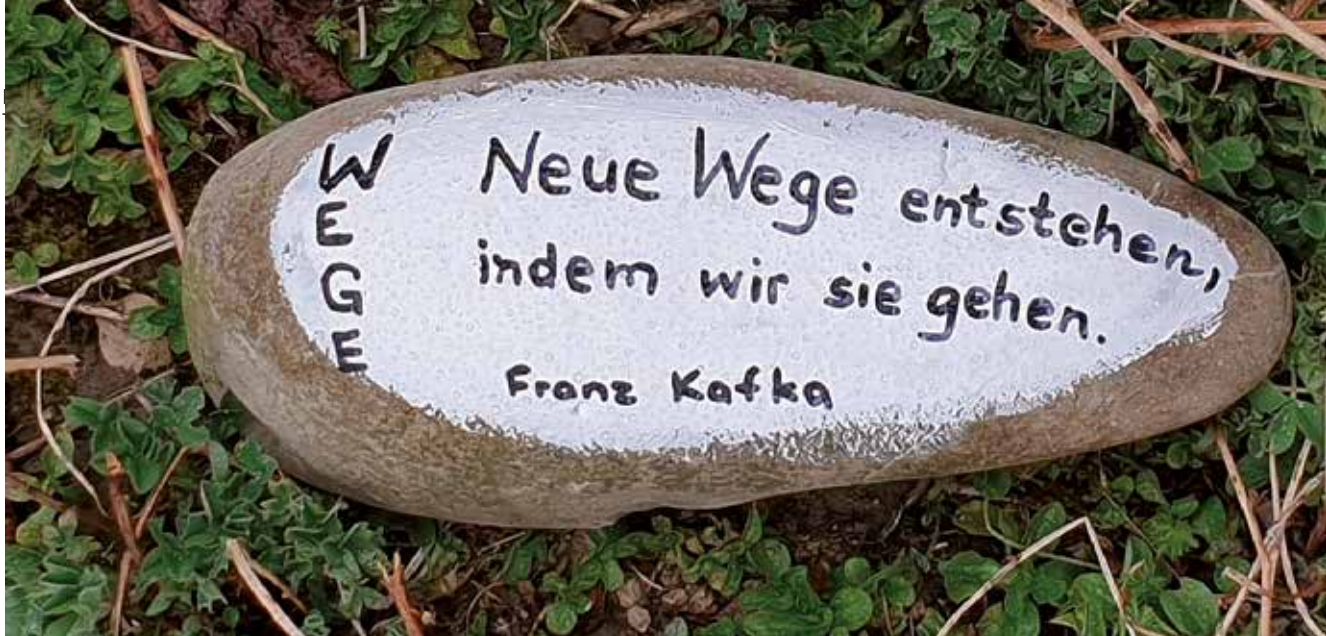 WEGE
Neue Wege entstehen,
indem wir sie gehen.
Franz Kafka